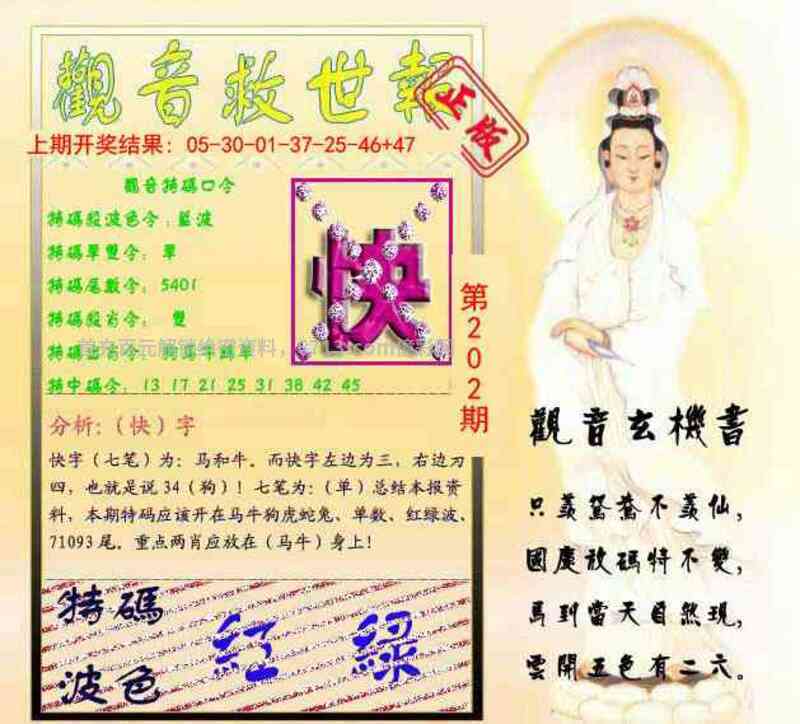 觀音救世報
正版
上期开奖结果：05-30-01-37-25-46+47
觀音特碼口令
特碼殺波色令：藍波
特碼單雙令：單
特碼尾數令：5401
特碼殺肖令： 雙
特中碼令：13 17 21 25 31 38 42 45
快
第202期
分析:（快）字
快字（七笔）为：马和牛。而快字左边为三，右边为
四，也就是说34（狗）！七笔为:（单）总结本报资
料，本期特码应该开在马牛狗虎蛇兔、单数、红绿波、
71093尾。重点两肖应放在（马牛）身上！
特碼
波色
紅 綠
觀音玄機書
只羨鴛鴦不羨仙，
國慶放碼特不變，
馬到當天自然現，
雲開五色有二六。